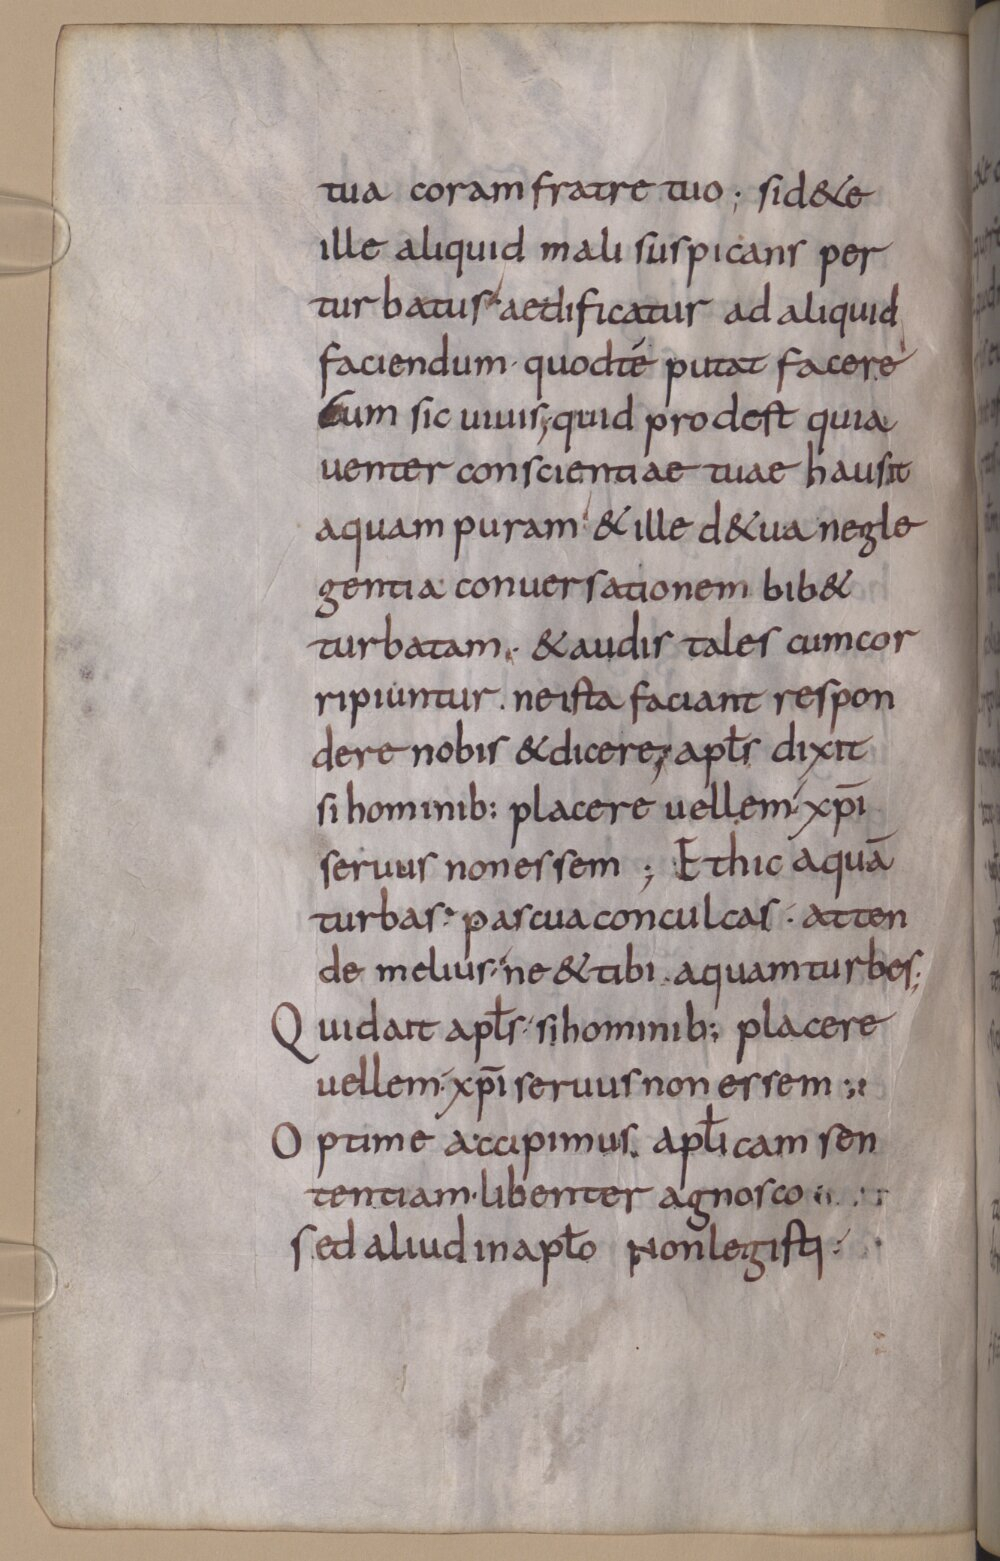 tua coram fratre tuo ; si d&e
ille aliquid mali suspicans per
turbatus aedificatur ad aliquid
faciendum · quod té putat facere
Cum sic uiuis, quid prodest quia
uenter conscientiae tuae hausit
aquam puram & ille d&ua negle
gentia conuersationem bib&
turbatam . & audis tales cum cor
ripiuntur . ne ista faciant respon
dere nobis & dicere; apl̄s dixit
si hominib: placere uellem · xp̄i
seruus non essem ; Et hic aquā
turbas · pascua conculcas · atten
de melius · ne & tibi . aquam turbes;
Quid ait apl̄s · si hominib; placere
uellem · xp̄i seruus non essem ;
Optime accipimus . apl̄icam sen
tentiam · libenter agnosco
sed aliud in apl̄o Non legisti ·